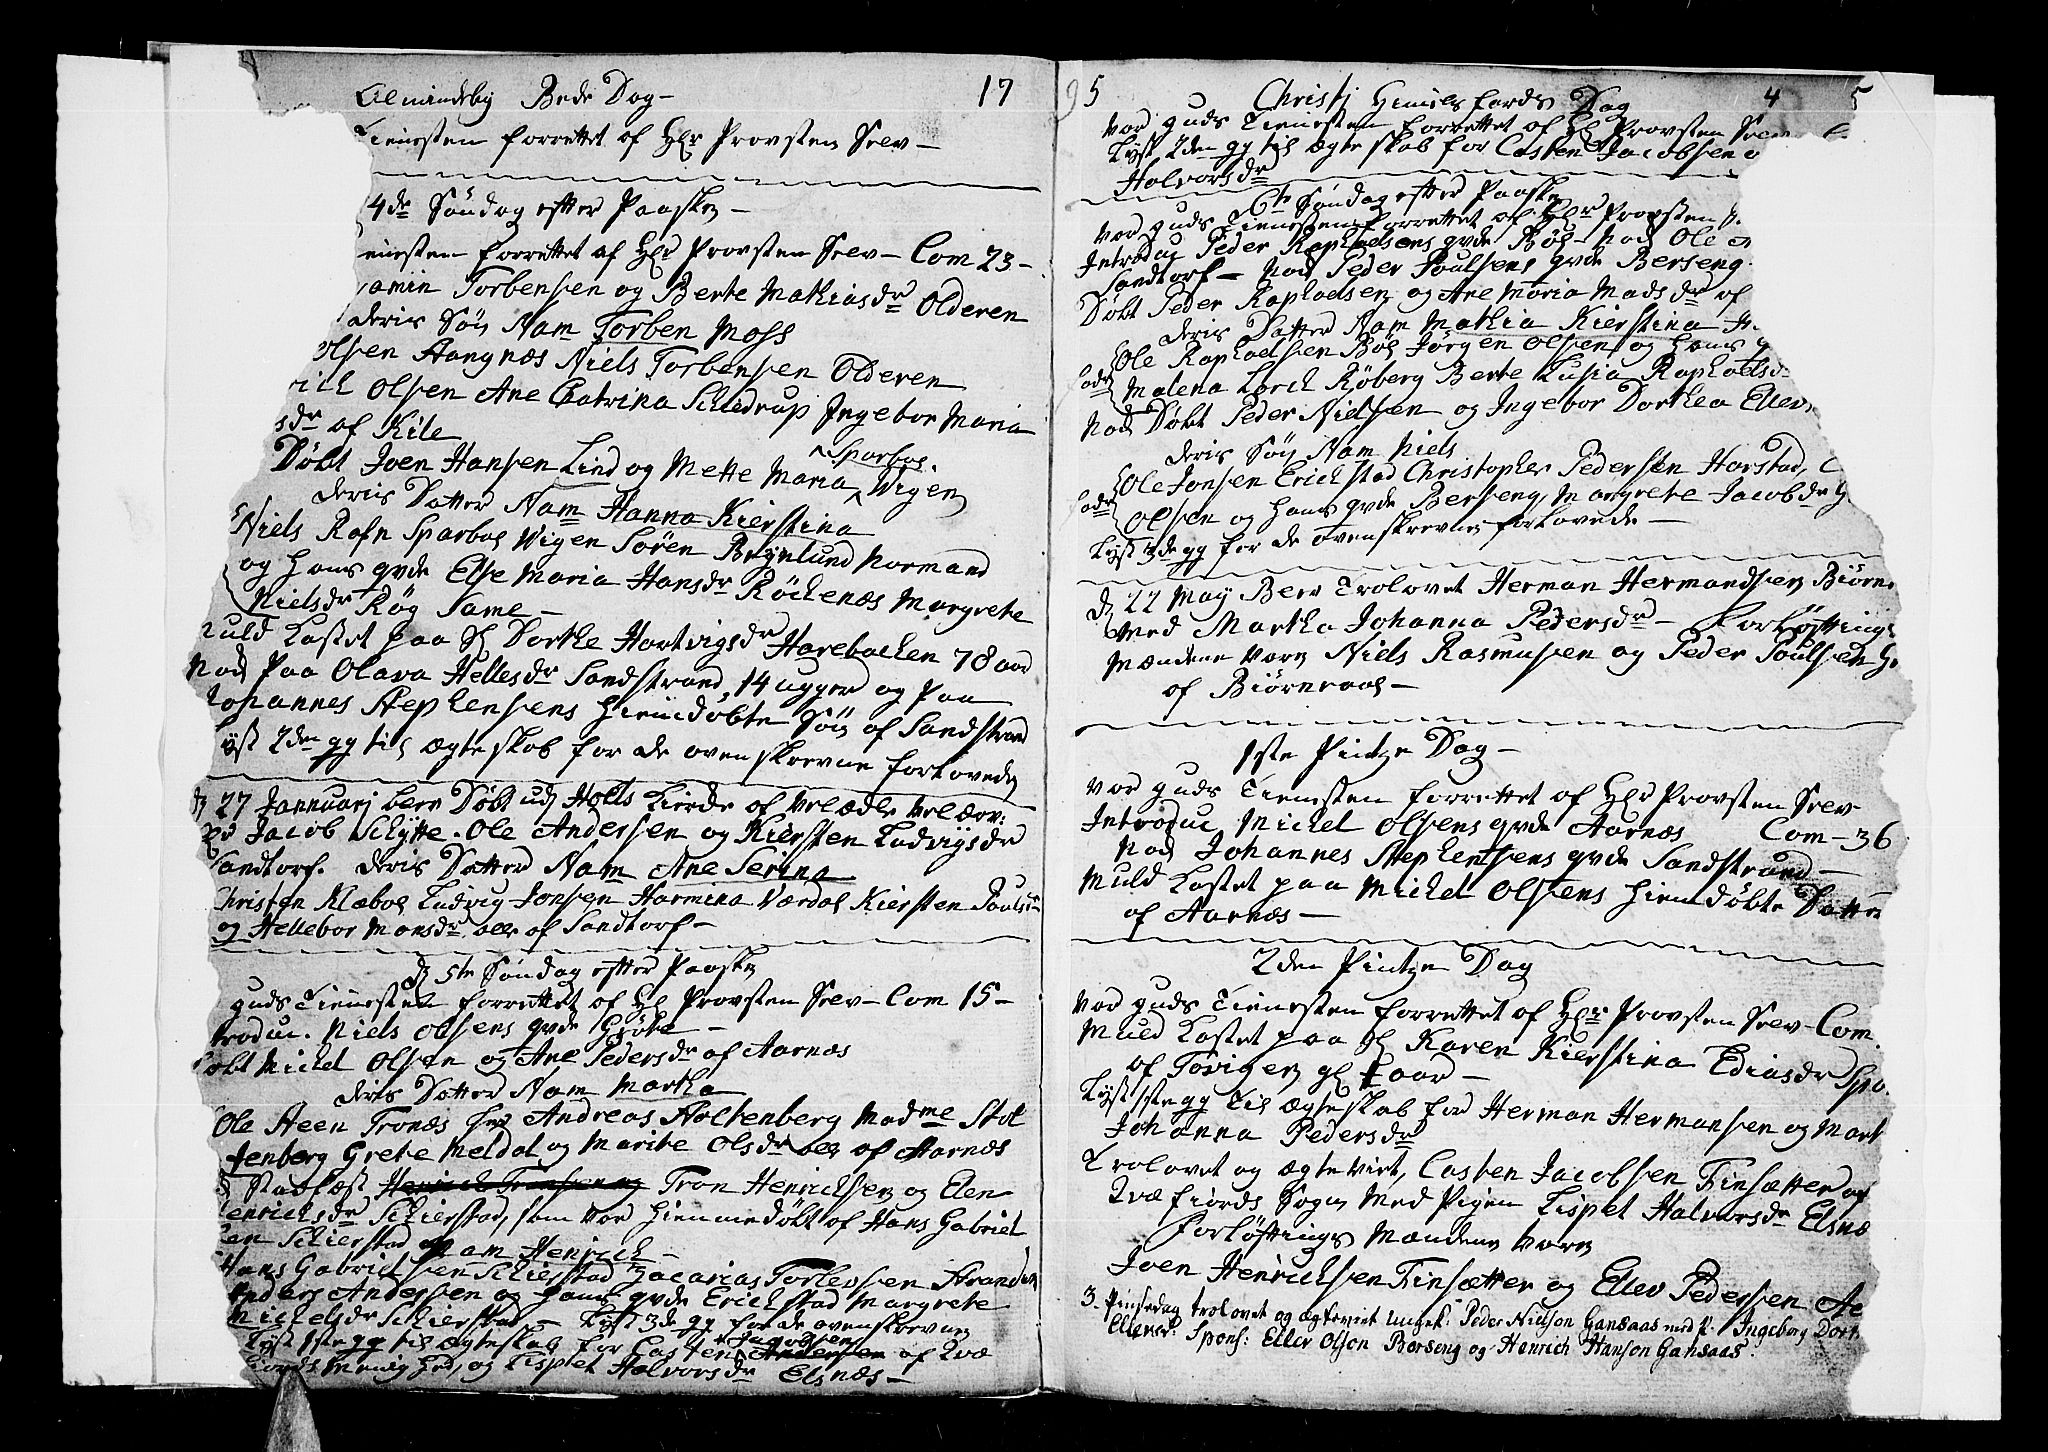 Almindelig Bede Dag — 17
Tienesten forrettet af Hr Provsten Selv —
4de Söndag efter Paaske —
enesten forrettet af Hr Provsten Selv — Com 23 —
amin Torbensen og Berte Mathiasdr Olderen
deris Søn Nam Torben Moss
olsen Aangnæs Niels Torbensen Olderen
rich Olsen Ane Catrina Schiedrup Ingebor Maria
sdr af Kile
Döbt Joen Hansen Lind og Mette Maria Sparboe Vigen
deris Datter Nam Hanna Kierstina
Niels Rafn Sparboe Vigen Sören Brynlund Normand
og Hans qvde Else Maria Hansdr Röckenæs Margrete
Nielsdr Røg Same —
Muld Kastet paa Sl Dorthe Hartvigsdr Harebacken 78 aar
Nod Paa Olava Hellesdr Sandstrand, 14 ugger og paa
Johannes Stephensens hiemdöbte Søn af Sandstrand
lyst 2den gg til ægteskab for de ovenskrevne forlovede
D 27 Januarj blev Döbt udj Holls Kirke af
Jacob Schytte. Ole Andersen og Kiersten Ludvigsdr
Sandtorf. deris Datter Nam Ane Serina
Christen Klæboe Ludvig Jonsen Harmina Værdal Kiersten Poulsdr
og Hellebor Monsdr alle af Sandtorf —
D 5te Söndag efter Paaske
guds Tienesten forrettet af Hl Provsten Selv — Com 15 —
troduc. Niels Olsens qvde
öbt Michel Olsen og Ane Pedersdr af Aarnæs
deris Datter Nam Martha
Ole Steen Tronæs Hr Andreas Holtenberg Madme Stol
tenberg Grete Meldal og Marite Olsdr alle af Aarnæs
Stadfæst Tron Henrichsen og Elen
Henrichsdr Schierstad, som var hiemmedöbt af Hans Gabriel
sen Schierstad Nam Henrich —
Hans Gabrielsen Schierstad Zacarias Torlevsen Stranden
Anders Andersen og Hans qvde Erichstad Margrete
Michelsdr Schierstad — Lyst 3de gg for de ovenskrevne
Lyst 1ste gg til ægteskab for Casten Jacobsen Andersen af Qvæ
fiords Menighed, og Lispet Halvorsdr Elsnæs —
95 Christj Himels farts Dag 4
Var guds Tienesten forrettet af Hl Provsten Selv
Lyst 2den gg til ægteskab for Casten Jacobsen o
Halvorsdr
6te Söndag efter Paaske
Var guds Tienesten forrettet af Hr Provsten
Introduc Peder Raphaelsens qvde Röe — Nod Ole
Sandtorf — Nod Peder Poulsens qvde Berseng
Döbt Peder Raphaelsen og Ane Maria Madsdr af
deris Datter Nam Mathia Kierstina
fadr Ole Raphaelsen Jørgen Olsen og Hans
Malena Lorch Röberg Berte Lusia Raphaelsd
Nod Döbt Peder Nielsen og Ingebor Dorthea Ellev
deris Søn Nam Niels
fadr Ole Jonsen Erichstad Christopher Pedersen Harstad,
Olsen og Hans qvde Berseng, Margrete Jacobsdr
Lyst 3de gg for de ovenskrevne forlovede —
D 22 Maij Blev Trolovet Herman Hermandsen Biørn
med Martha Johanna Pedersdr — Forløftings
Mændene Vare Niels Rasmusen og Peder Poulsen
af
1ste Pintze Dag —
Var guds Tienesten forrettet af Hr Provsten Selv
Introduc Michel Olsens qvde Aarnæs Com — 36
Nod Johannes Stephensens qvde Sandstrand —
Muld Kastet paa Michel Olsens hiemdöbte Datter
af Aarnæs —
2den Pintze Dag
Var guds Tienesten forrettet af Hr Provsten Selv — Com.
Muld Kastet paa Sl Karen Kierstina Ediasdr Spa.
af Tøvigen gl aar —
Lyst 1ste gg til ægteskab for Herman Hermansen og Mart
Johanna Pedersdr
Trolovet og ægteviet, Casten Jacobsen Finsætter af
Qvæfiords Sogn Med Pigen Lispet Halvorsdr Elsnæ
Forløftings Mændene Vare
Joen Henrichsen Finsætter og Ellev Pedersen
3. Pinsedag trolovet og ægteviet Ungk: Peder Nielson Gansaas med P: Ingeborg Dort
Ellevsd: Spons: Ellev Olson Berseng og Henrich Hanson Gansaas.